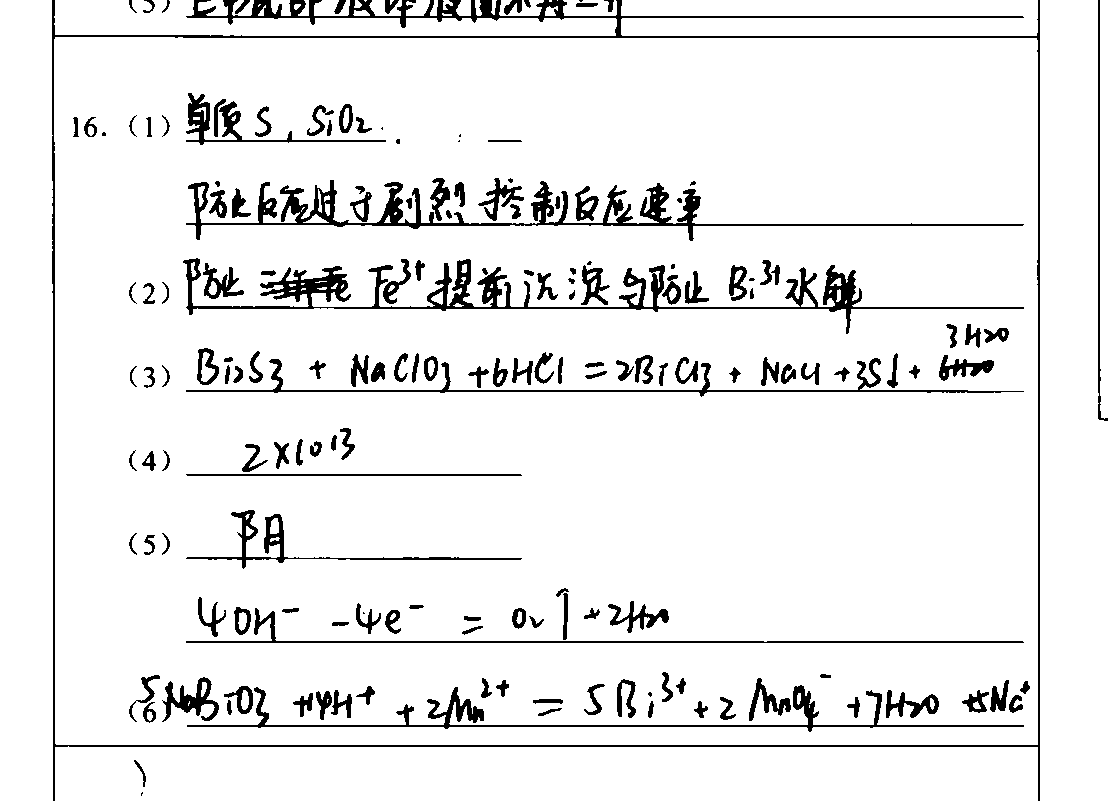 (5)
16. (1) 单质S, SiO₂.
防止反应过于剧烈 控制反应速率
(2) 防止 Fe³⁺提前沉淀与防止 Bi³⁺水解
3H₂O
(3) Bi₂S₃ + NaClO₃ +6HCl =2BiCl₃ + NaCl +3S↓+ 6H₂O
(4) 2×10¹³
(5) 阴
4OH⁻ -4e⁻ = O₂↑+2H₂O
(6) 5NaBiO₃ +14H⁺ +2Mn²⁺ = 5Bi³⁺+2MnO₄⁻+7H₂O +5Na⁺